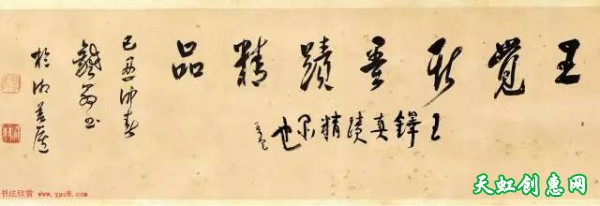 王覺斯墨蹟精品
王鐸真蹟精品也
己丑仲春
书法欣赏 www.yac8.com
天虹创意网